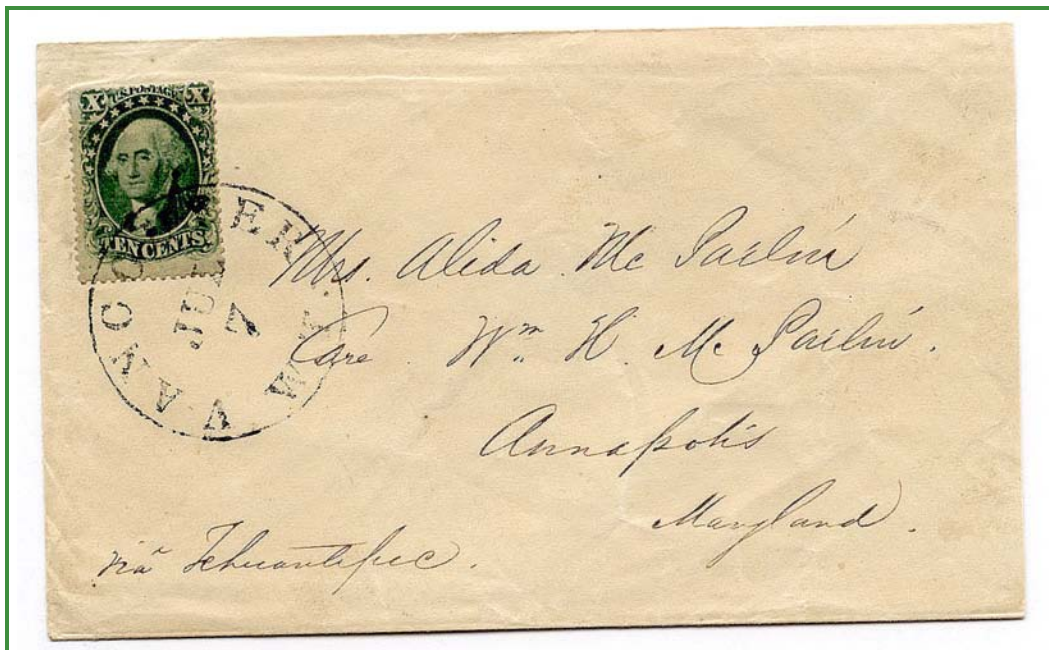 X U.S. POSTAGE X
TEN CENTS
VANCOUVER W.T.
JUL
7
Mrs. Alida Mc Parlin
Care Wm. H. Mc Parlin.
Annapolis
Maryland.
via Tehuantepec.